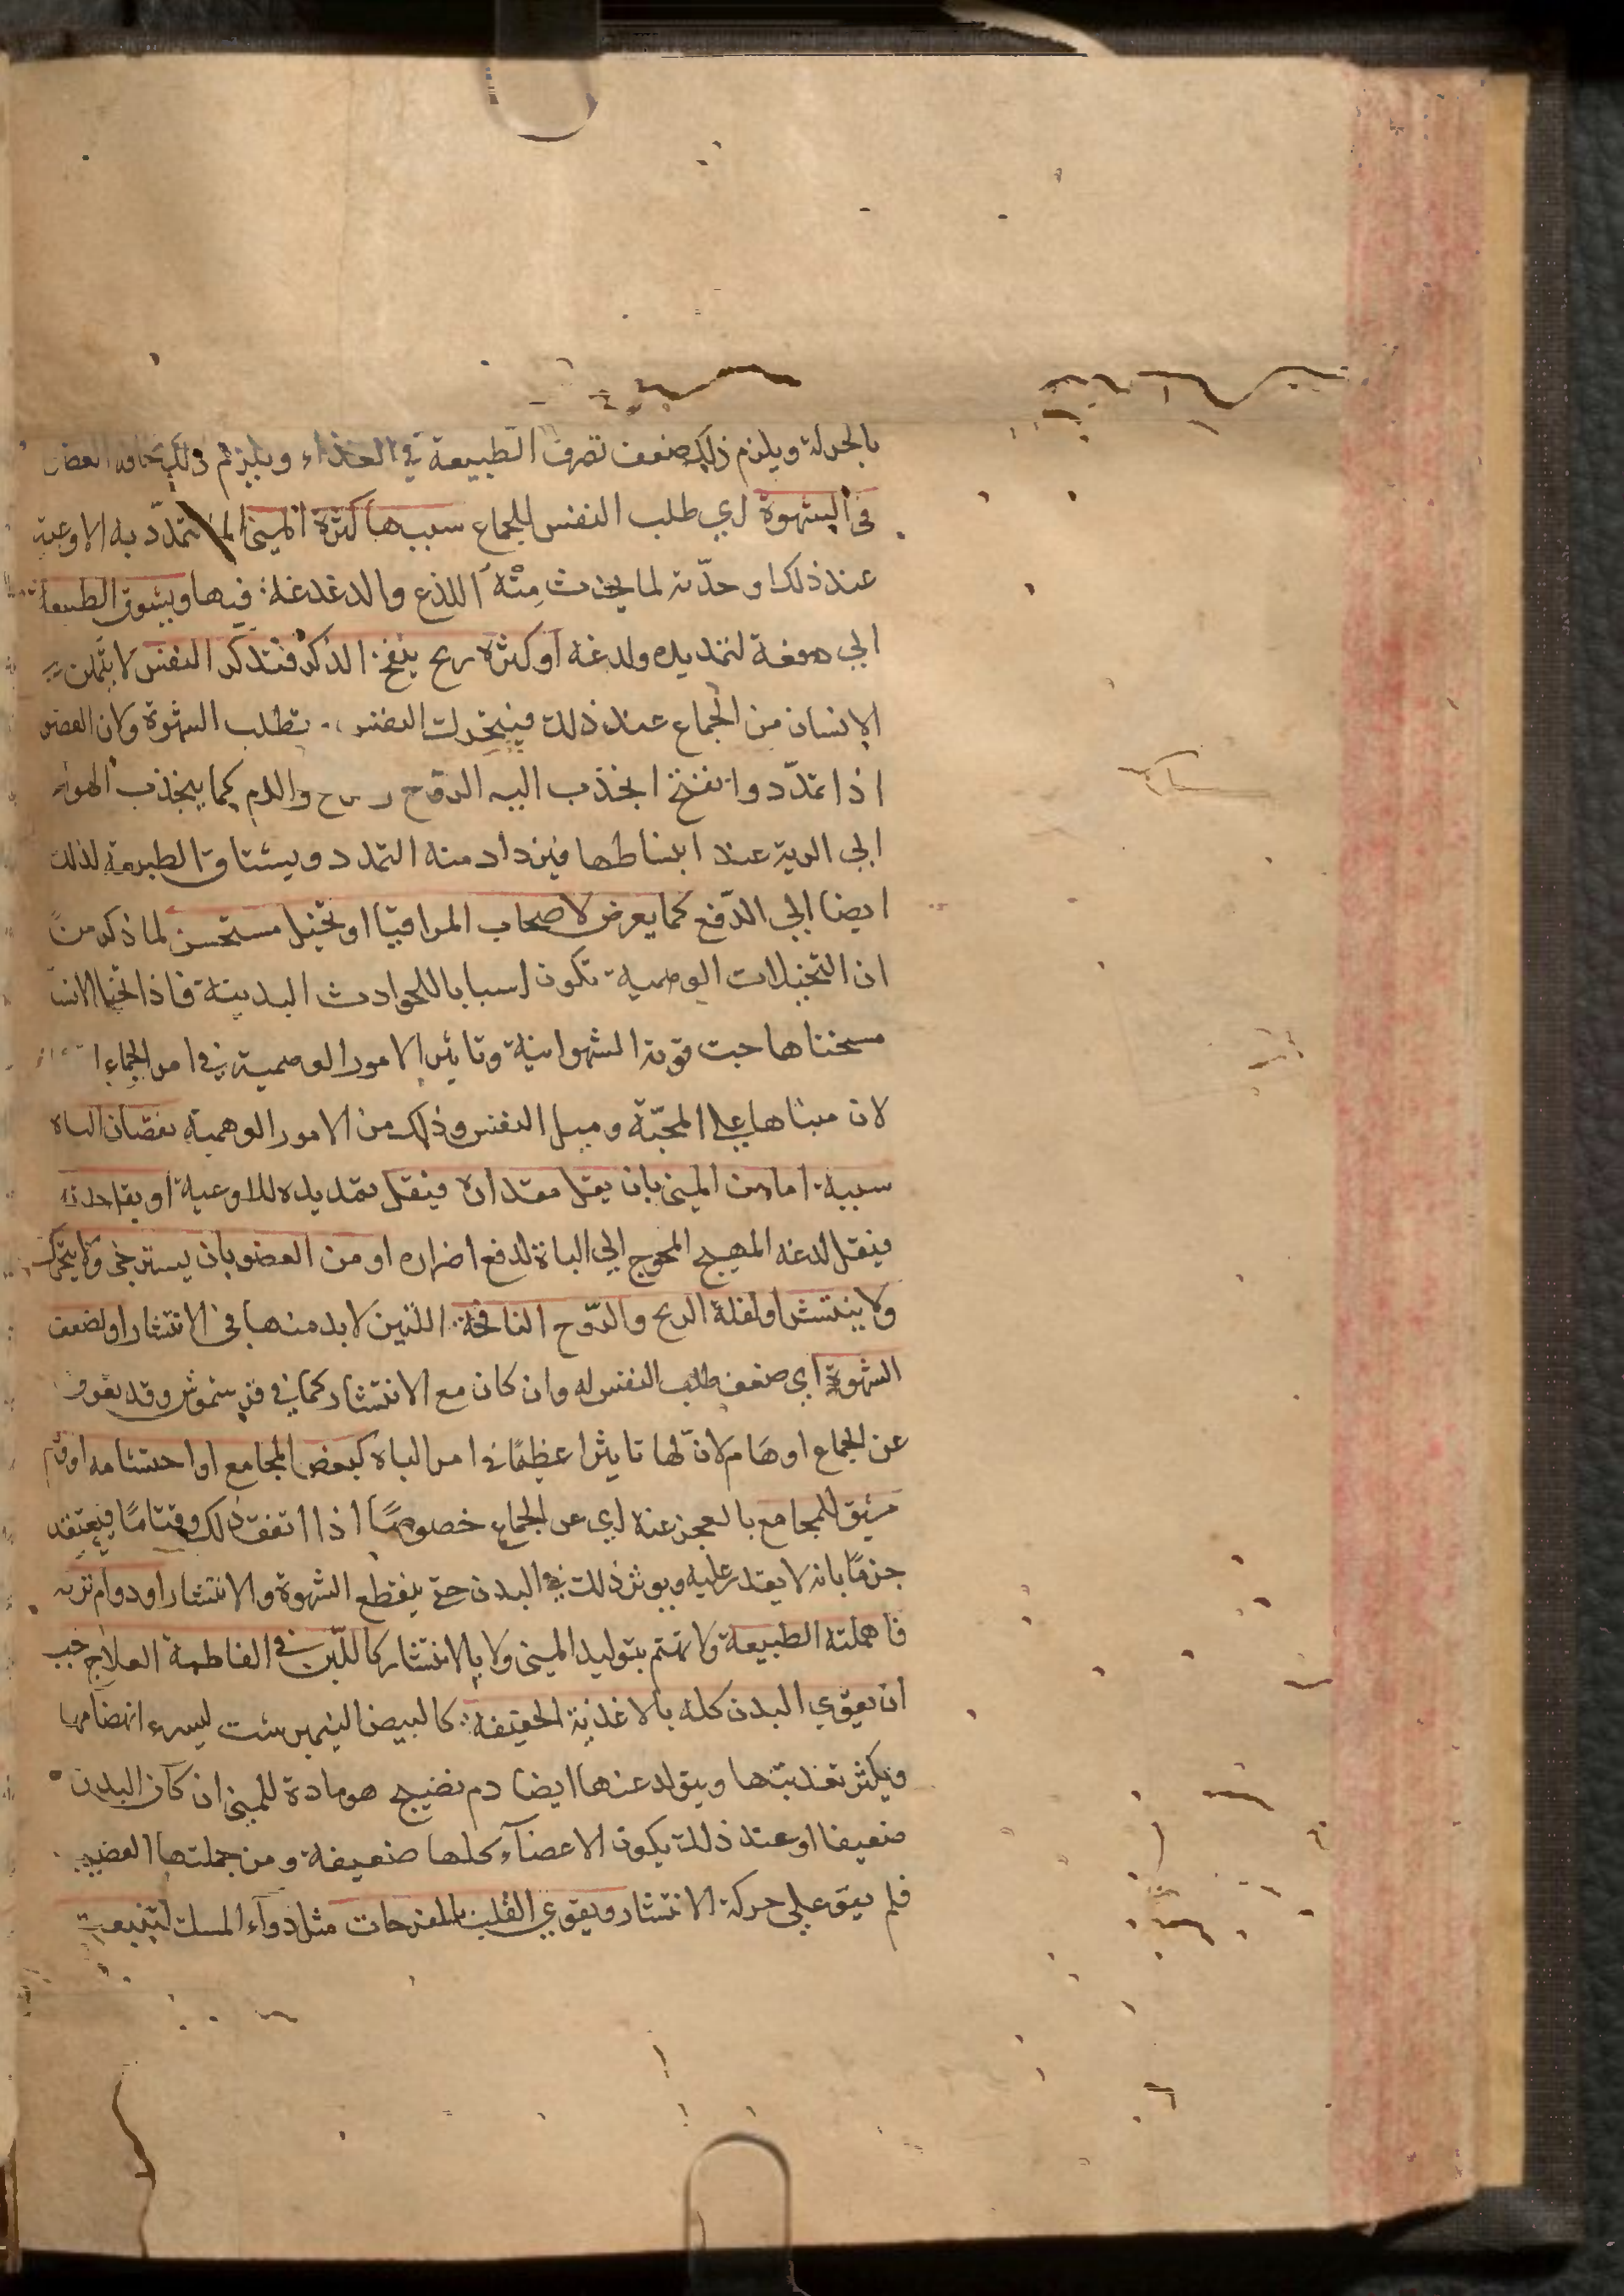 بالجملة ويلزم ذلك ضعف تصرف الطبيعة في الغذاء ويلزم ذلك نحافة العضو
في الشهوة اي طلب النفس للجماع سببها كثرة المني لما تمدّد به الاوعية
عند ذلك او حدّته لما يحدث مِنْهُ اللذع والدغدغة فيها ويشوق الطبيعة
الي دفعه لتمديده ولدغه او كثرة ريح ينفخ الذكر فتذكر النفس لا يتمكن
الانسان من الجماع عند ذلك فيتحرك النفس تطلب الشهوة ولان العضو
اذا تمدّد وانفتح انجذب اليه الروح والدم كما ينجذب الهواء
الي الرية عند انبساطها فيزداد منه التمدد ويشتاق الطبيعة لذلك
ايضا الي الدّفع كما يعرض لاصحاب المراقيا او تخيل مستحسن لما ذكر من
ان التخيلات الوهمية تكون اسبابا للحوادث البدنية فاذا الانسان
مستحسنا هاجت قوته الشهوانية وتاثير الامور الوهمية في امر الجماع
لان مبناها علي المحبّة وميل النفس وذلك من الامور الوهمية نقصان الباه
سببه اما من المني بان يقل مقداره فيقل تمديده للاوعية او يقل حدته
فيقل لدغه المهيج المحوج الي الباه لدفع اضراره او من العضو بان يسترخي ولا يتحرك
ولا ينتشر او لقلة الريح والرّوح النافخة اللذين لا بد منهما في الانتشار او لضعف
الشهوة اي ضعف طلب النفس له وان كان مع الانتشار كما في فريسموش وقد يعوق
عن الجماع اوهام لانّ لها تاثيرا عظيمًا في امر الباه كبغض المجامع او احتشامه او
سبق للمجامع بالعجز عنه اي عن الجماع خصوصًا اذا اتفق ذلك وقتامًا فيعتقد
جزمًا بانه لا يقدر عليه ويوثر ذلك في البدن حتي ينقطع الشهوة والانتشار او دوام تركه
فاهملته الطبيعة ولا تهتم بتوليد المني ولا بالانتشار كاللّبن في الفاطمة العلاج يجب
ان يقوي البدن كله بالاغذية الخفيفة كالبيض النيمبرشت ليسرع انهضامها
ويكثر تغذيتها ويتولد عنها ايضا دم نضيج هو مادة للمني ان كان البدن
ضعيفا او عند ذلك يكون الاعضاء كلها ضعيفة ومن جملتها القضيب
فلم يقو علي حركة الانتشار ويقوي القلب بالمفرحات مثل دواء المسك